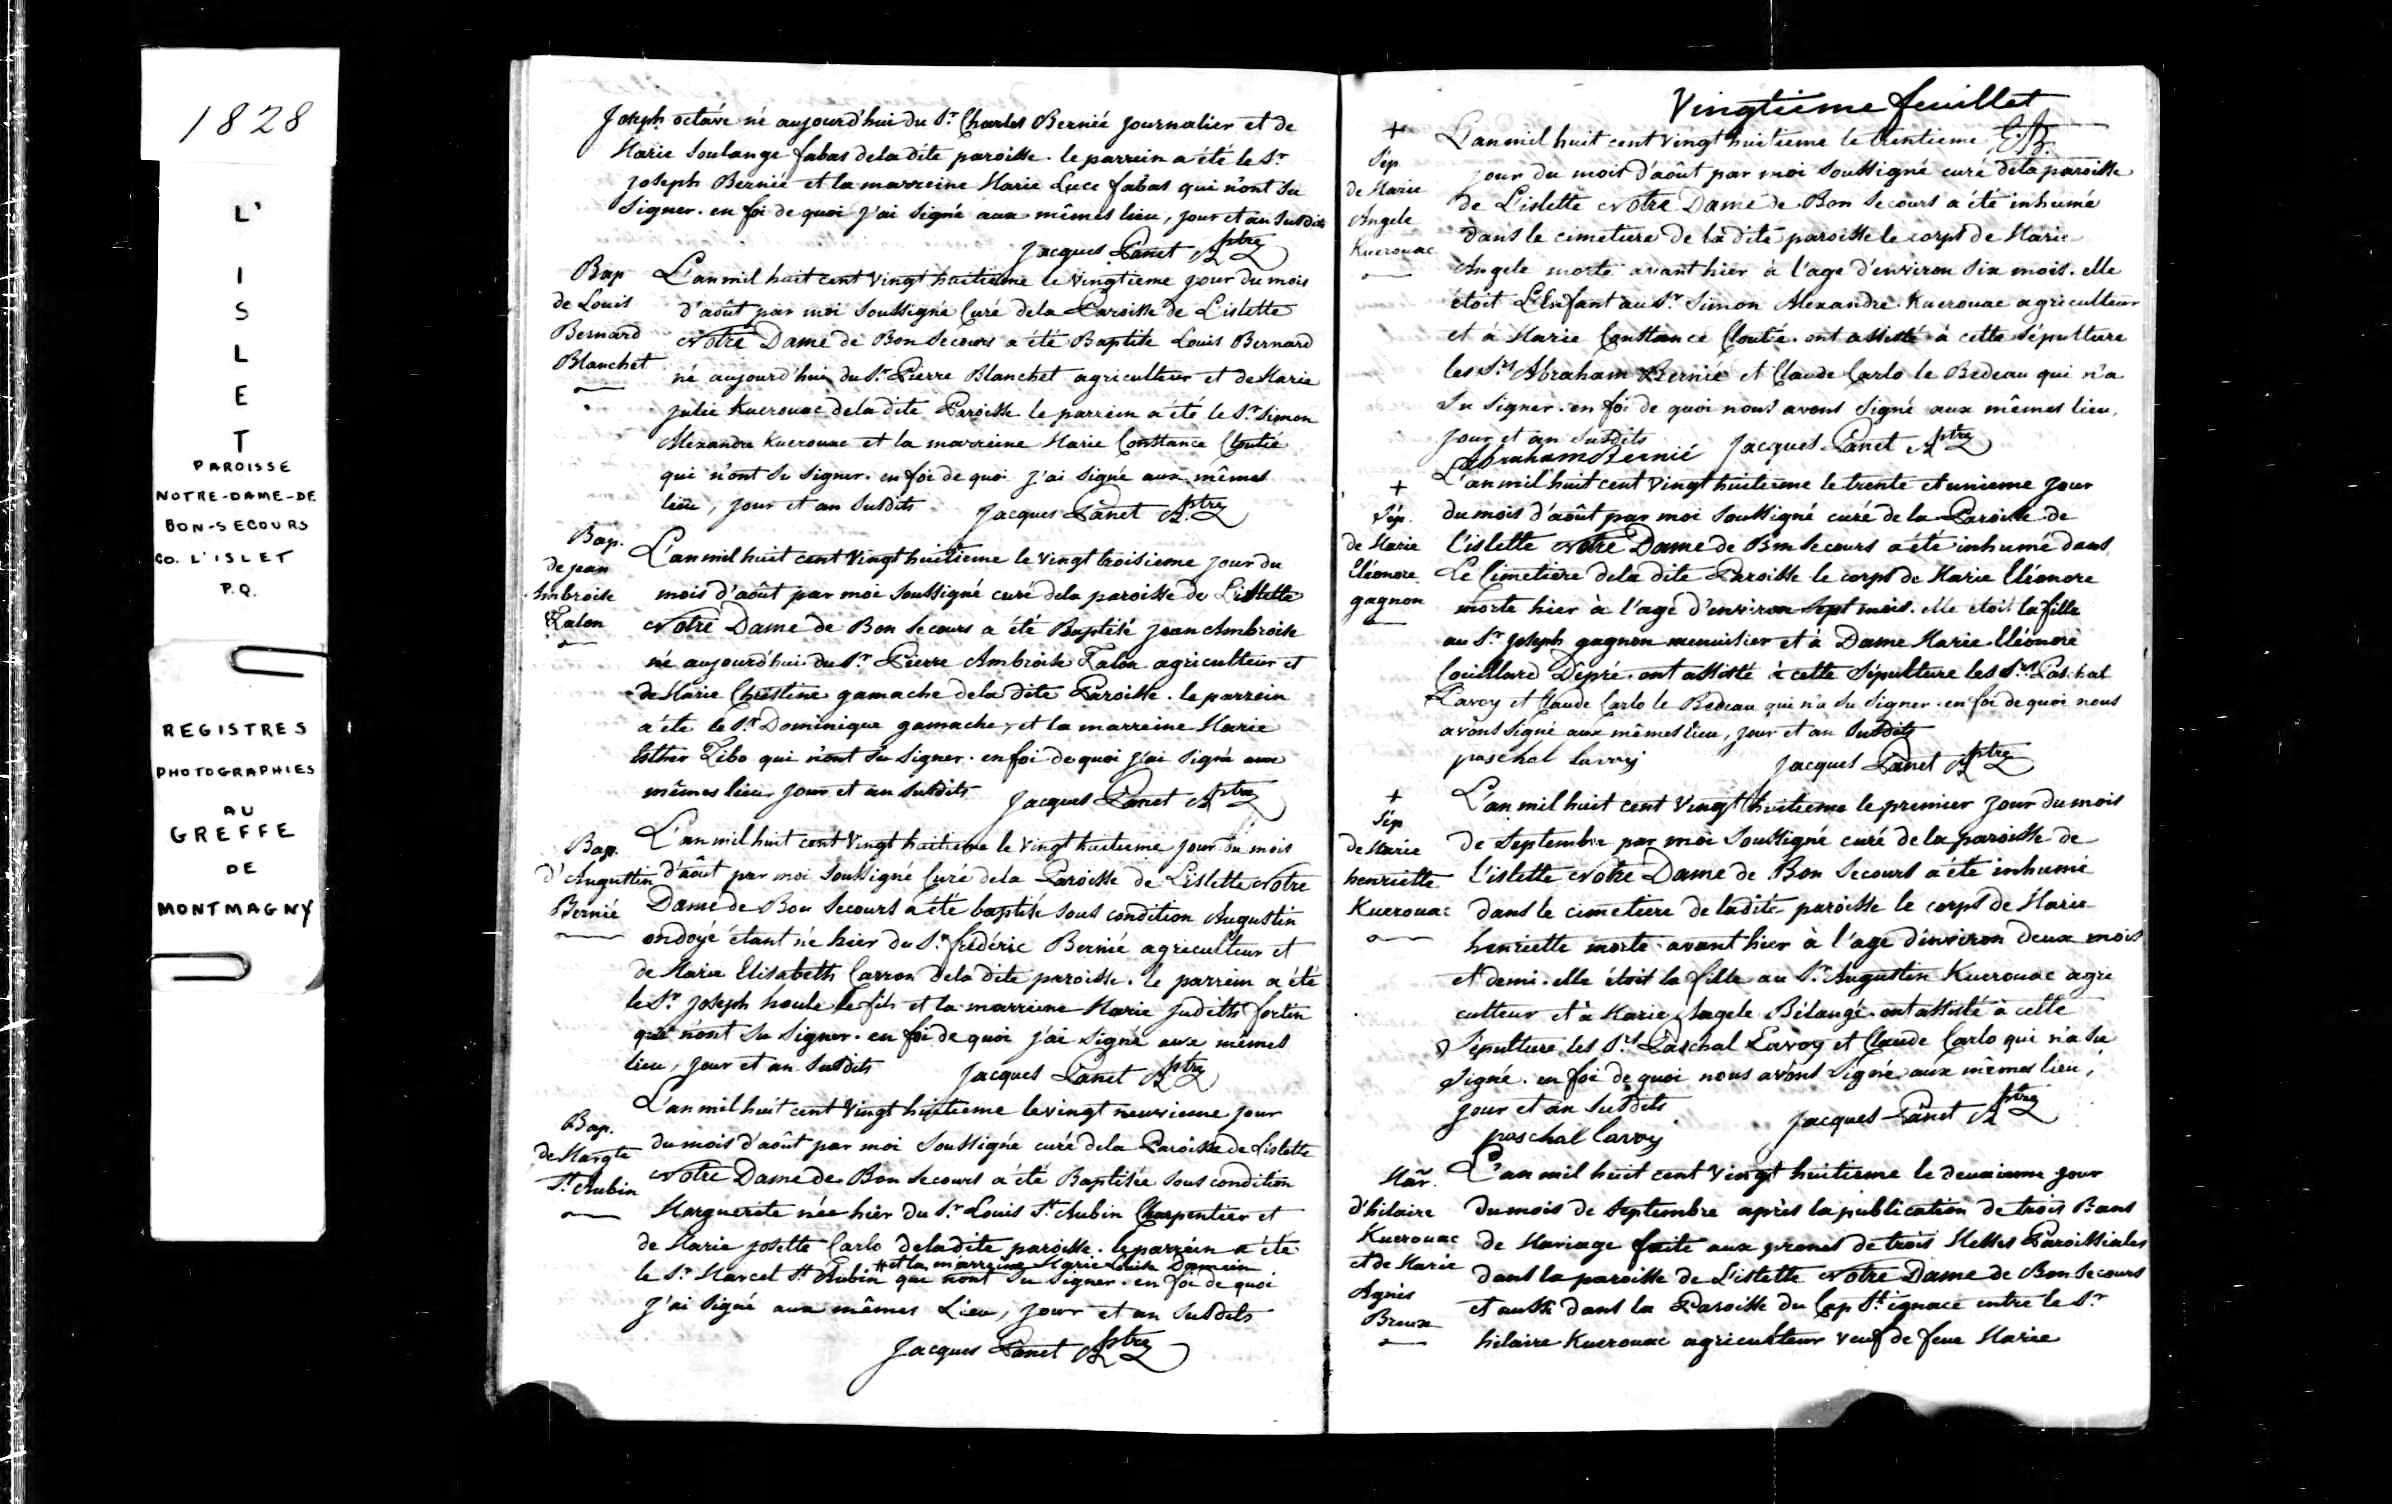 1828
L'
I
S
L
E
T
PAROISSE
NOTRE-DAME-DE
BON-SECOURS
CO. L'ISLET
P.Q.
REGISTRES
PHOTOGRAPHIES
AU
GREFFE
DE
MONTMAGNY
Joseph octave né aujourd'hui du Sr. Charles Bernié journalier et de
Marie Soulange fabas dela dite paroisse. le parrein a été le Sr
Joseph Bernié et la marreine Marie Luce fabas qui n'ont su
signer. en foi de quoi j'ai signé aux mêmes lieu, jour et an susdits
Jacques Panet ptre
Bap
de Louis
Bernard
Blanchet
L'an mil huit cent vingt huitieme le vingtieme jour du mois
d'août par moi soussigné Curé dela Paroisse de L'islette
Notre Dame de Bon Secours a été Baptisé Louis Bernard
né aujourd'hui du Sr. Pierre Blanchet agriculteur et de Marie
julie Kuerouac dela dite Paroisse le parrein a été le Sr. Simon
Alexandre Kuerouac et la marreine Marie Constance Cloutié
qui n'ont su signer. en foi de quoi j'ai signé aux mêmes
lieu, jour et an susdits Jacques Panet ptre
Bap.
de jean
Ambroise
Talon
L'an mil huit cent vingt huitieme le vingt troisieme jour du
mois d'août par moi soussigné curé dela paroisse de L'islette
Notre Dame de Bon Secours a été Baptisé jean Ambroise
né aujourd'hui du Sr. Pierre Ambroise Talon agriculteur et
de Marie Christine gamache dela dite Paroisse. le parrein
a été le Sr. Dominique gamache, et la marreine Marie
Esther Zibo qui n'ont su signer. en foi de quoi j'ai signé aux
mêmes lieu jour et an susdits Jacques Panet ptre
Bap.
d'Augustin
Bernié
L'an mil huit cent vingt huitieme le vingt huitieme jour du mois
d'août par moi soussigné Curé dela Paroisse de L'islette Notre
Dame de Bon Secours a été baptisé sous condition Augustin
ondoyé étant né hier du Sr. frédéric Bernié agriculteur et
de Marie Elisabeth Carron dela dite paroisse. le parrein a été
le Sr. Joseph houle le fils et la marreine Marie Judith fortin
qui n'ont su signer. en foi de quoi j'ai signé aux mêmes
lieu, jour et an susdits Jacques Panet ptre
Bap.
de Margte
St. Aubin
L'an mil huit cent vingt huitieme le vingt neuvieme jour
du mois d'août par moi soussigné curé dela Paroisse de Lislette
Notre Dame de Bon Secours a été Baptisée sous condition
Marguerite née hier du Sr. Louis St. Aubin Charpentier et
de Marie josette Carlo dela dite paroisse. le parrein a été
# et la marreine Marie Louise Damien
le Sr. Marcel St. Aubin # qui n'ont su signer. en foi de quoi
j'ai signé aux mêmes Lieu, jour et an susdits
Jacques Panet ptre
Vingtième feuillet
+
Sép
de Marie
Angele
Kuerouac
L'an mil huit cent vingt huitieme le trentieme
jour du mois d'août par moi soussigné curé dela paroisse
de L'islette Notre Dame de Bon Secours a été inhumé
dans le cimetiere de la dite paroisse le corps de Marie
Angele morte avant hier à l'age d'environ six mois. elle
étoit L'Enfant au Sr. Simon Alexandre Kuerouac agriculteur
et à Marie Constance Cloutié. ont assisté à cette sépulture
les Srs Abraham Bernié et Claude Carlo le Bedeau qui n'a
su signer. en foi de quoi nous avons signé aux mêmes lieu,
jour et an susdits Jacques Panet ptre
Abraham Bernié
+
Sép.
de Marie
Eléonore
gagnon
L'an mil huit cent vingt huitieme le trente et unieme jour
du mois d'août par moi soussigné curé de la Paroisse de
l'islette Notre Dame de Bon Secours a été inhumé dans
Le Cimetiere dela dite Paroisse le corps de Marie Eléonore
morte hier à l'age d'environ sept mois. elle étoit la fille
au Sr. Joseph gagnon menuisier et à Dame Marie Eléonore
Couillard Dépré. ont assisté à cette Sépulture les Srs. Paschal
Lavoy et Claude Carlo le Bedeau qui n'a su signer. en foi de quoi nous
avons signé aux mêmes lieu, jour et an susdits
paschal lavoy Jacques Panet ptre
+
Sép
de Marie
henriette
Kuerouac
L'an mil huit cent vingt huitieme le premier jour du mois
de Septembre par moi soussigné curé de la paroisse de
l'islette Notre Dame de Bon Secours a été inhumé
dans le cimetiere de ladite paroisse le corps de Marie
henriette morte avant hier à l'age d'environ deux mois
et demi. elle étoit la fille au Sr. Augustin Kuerouac agri
culteur et à Marie Angele Bélangé. ont assisté à cette
Sépulture les Srs. Paschal Lavoy et Claude Carlo qui n'a su
signé. en foi de quoi nous avons signé aux mêmes lieu,
jour et an susdits Jacques Panet ptre
paschal lavoy
Mar.
d'hilaire
Kuerouac
et de Marie
Agnès
Breux
L'an mil huit cent vingt huitieme le deuxieme jour
du mois de Septembre après la publication de trois Bans
de Mariage faite aux prones de trois Messes Paroissiales
dans la paroisse de L'islette Notre Dame de Bon Secours
et aussi dans la Paroisse du Cap St. ignace entre le Sr.
hilaire Kuerouac agriculteur veuf de feue Marie